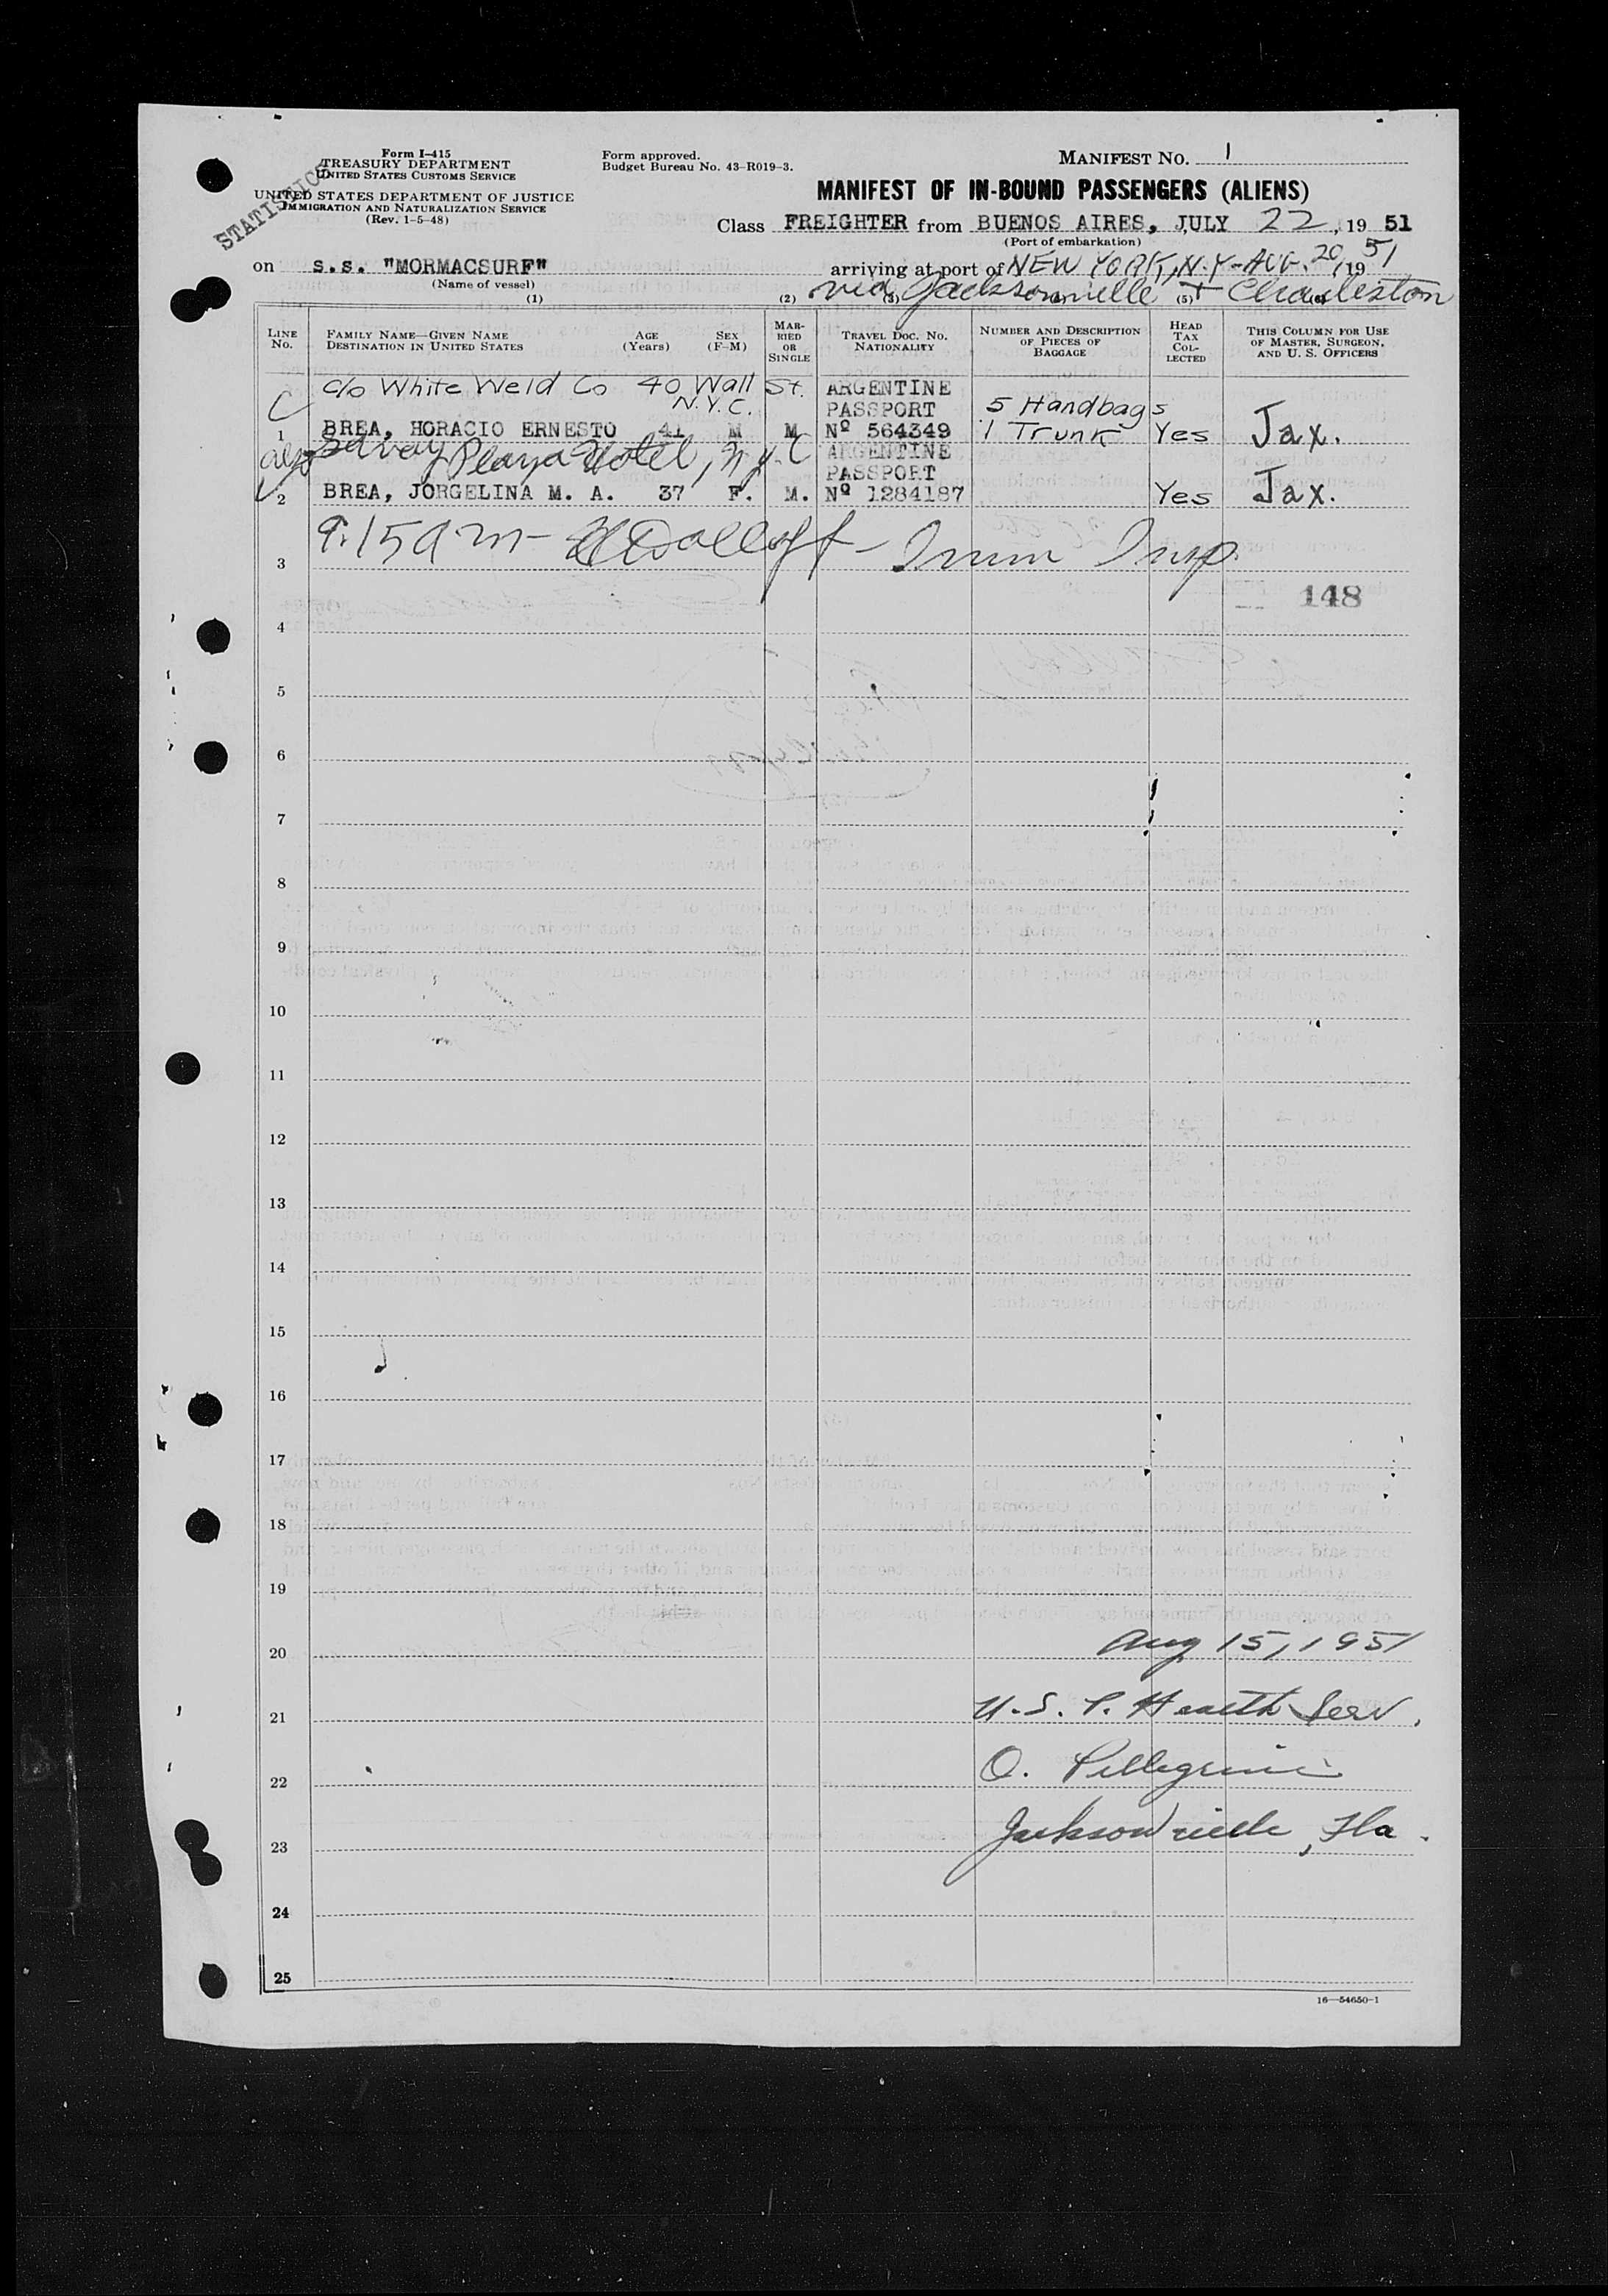 Form I-415
TREASURY DEPARTMENT
UNITED STATES CUSTOMS SERVICE
UNITED STATES DEPARTMENT OF JUSTICE
IMMIGRATION AND NATURALIZATION SERVICE
(Rev. 1-5-48)
STATISTICS
Form approved.
Budget Bureau No. 43-R019-3.
MANIFEST NO. 1
MANIFEST OF IN-BOUND PASSENGERS (ALIENS)
Class FREIGHTER from BUENOS AIRES, JULY 22, 19 51
(Port of embarkation)
on S.S. "MORMACSURF" arriving at port of NEW YORK, N.Y - AUG. 20, 19 51
(Name of vessel)
via Jacksonville + Charleston
(1) (2) (3) (5)
LINE No.
FAMILY NAME—GIVEN NAME
DESTINATION IN UNITED STATES
AGE (Years)
SEX (F-M)
MARRIED OR SINGLE
TRAVEL DOC. NO. NATIONALITY
NUMBER AND DESCRIPTION OF PIECES OF BAGGAGE
HEAD TAX COLLECTED
THIS COLUMN FOR USE OF MASTER, SURGEON, AND U. S. OFFICERS
c/o White Weld Co 40 Wall St. ARGENTINE
N.Y.C. PASSPORT 5 Handbags
1 BREA, HORACIO ERNESTO 41 M M Nº 564349 1 Trunk Yes Jax.
Savoy Plaza Hotel, N.y.C ARGENTINE
PASSPORT
2 BREA, JORGELINA M. A. 37 F. M. Nº 1284187 Yes Jax.
9:15 am - Imm Insp.
3
148
4
5
6
7
8
9
10
11
12
13
14
15
16
17
18
19
20 Aug 15, 1951
21 U.S.P. Health Serv.
22 O. Pellegrini
23 Jacksonville, Fla.
24
25
16—54650-1